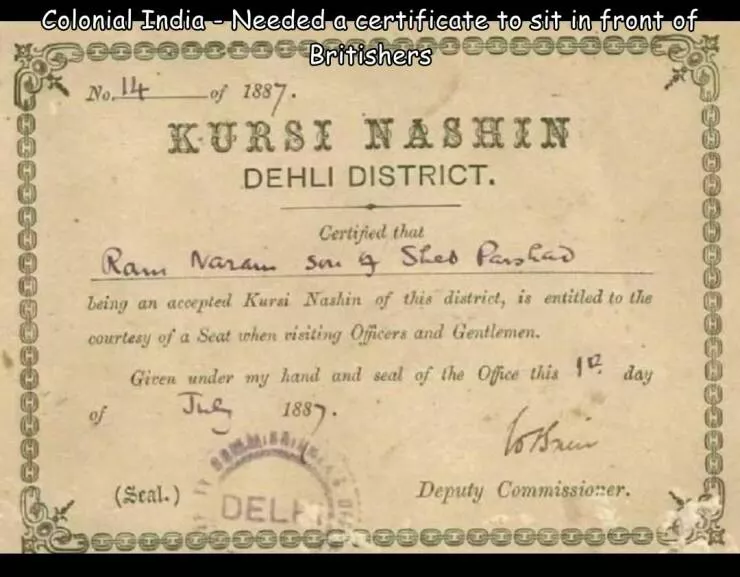 Colonial India - Needed a certificate to sit in front of
Britishers
No. 14 of 1887.
KURSI NASHIN
DEHLI DISTRICT.
Certified that
Ram Narain son of Sheo Parshad
being an accepted Kursi Nashin of this district, is entitled to the
courtesy of a Seat when visiting Officers and Gentlemen.
Given under my hand and seal of the Office this 1st day
of July 1887.
(Seal.)
DELHI
Deputy Commissioner.